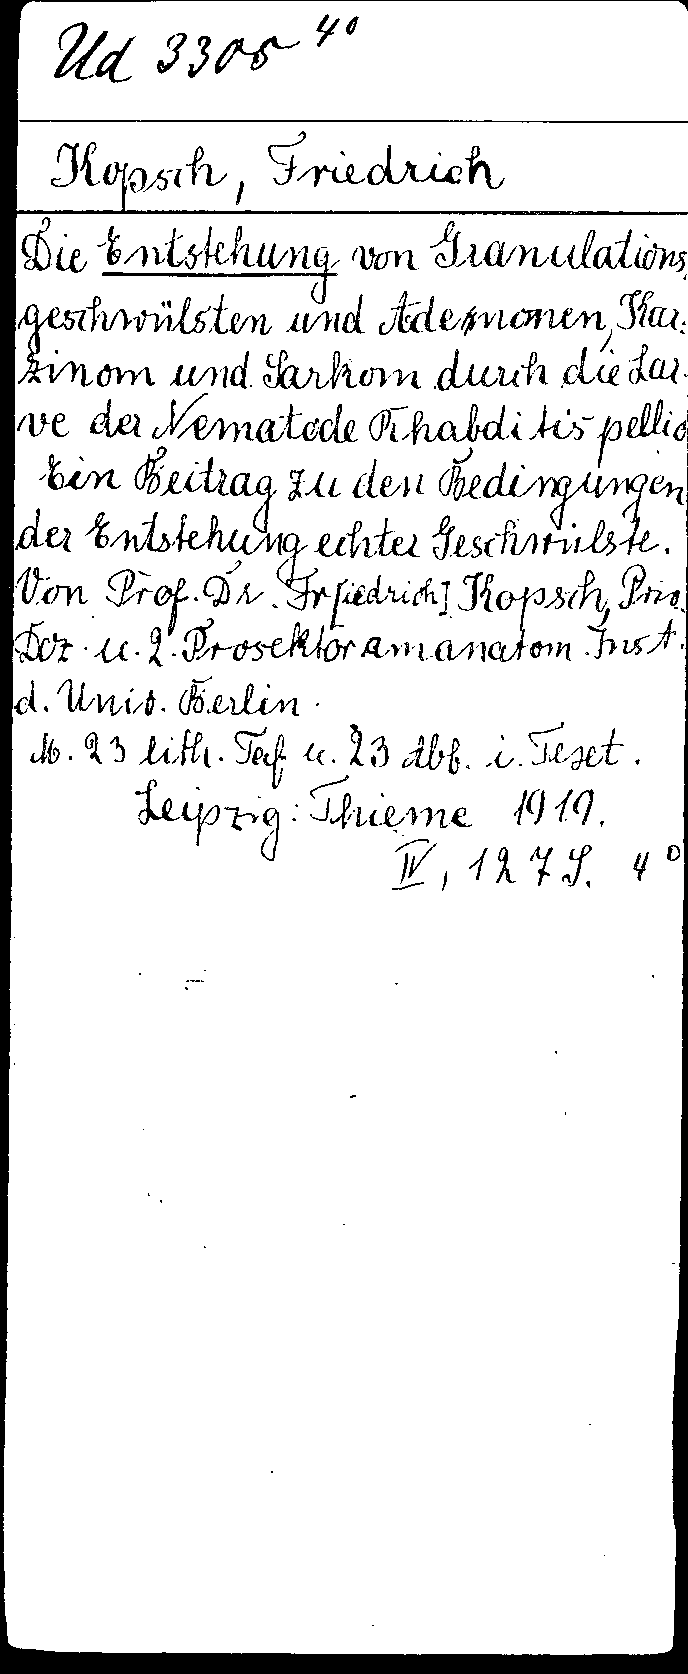 Ud 3305 4°
Kopsch, Friedrich
Die Entstehung von Granulations,
geschwülsten und Adenomen, Kar:
zinom und Sarkom durch die Lar-
ve der Nematode Rhabditis pellio
Ein Beitrag zu den Bedingungen
der Entstehung echter Geschwülste.
Von Prof. Dr. Fr[iedrich] Kopsch, Priv.
Doz. u. 2. Prosektor am anatom. Inst.
d. Univ. Berlin.
M. 23 lith. Taf. u. 23 Abb. i. Text.
Leipzig: Thieme 1919.
IV, 127 S. 4°